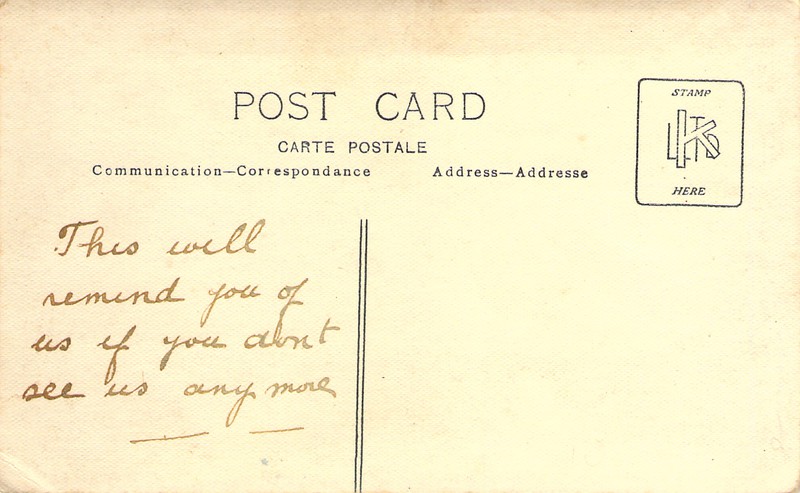 POST CARD
CARTE POSTALE
Communication—Correspondance Address—Addresse
STAMP
K LTD
HERE
This will
remind you of
us if you dont
see us any more